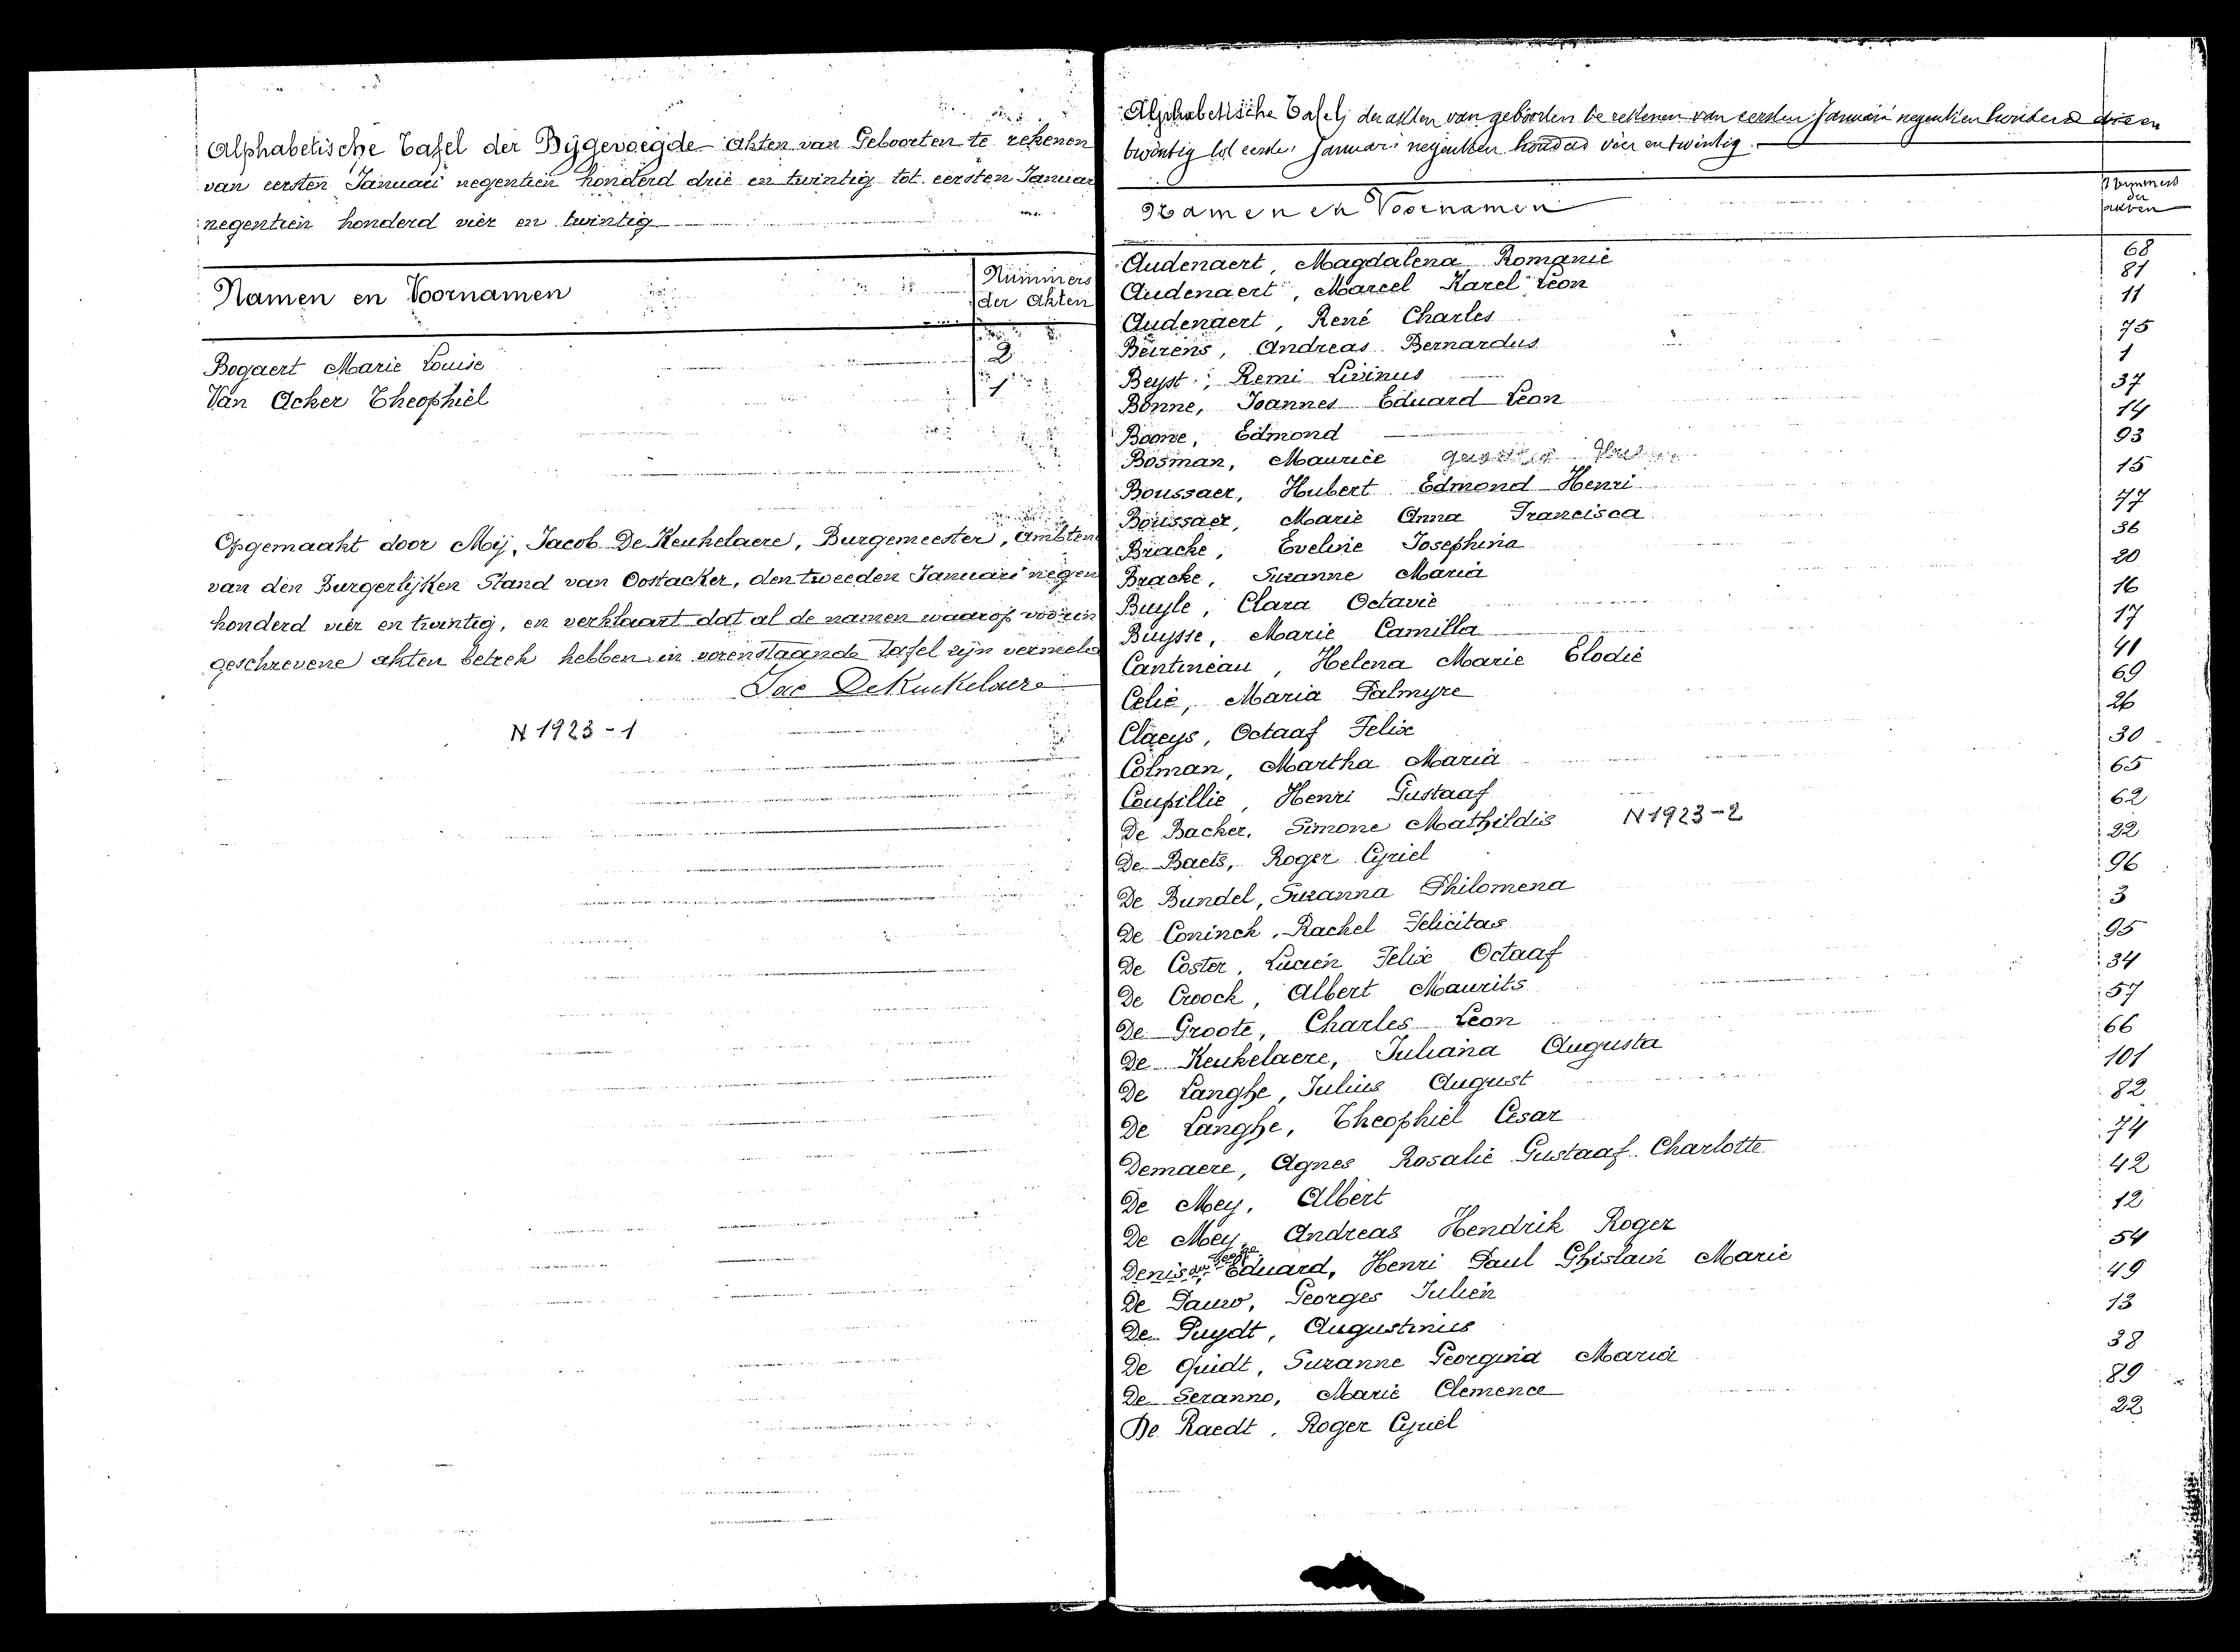 Alphabetische Tafel der Bijgevoegde Akten van Geboorten te rekenen
van eersten Januari negentien honderd drie en twintig tot eersten Januar
negentien honderd vier en twintig
Namen en Voornamen
Nummers
der Akten
Bogaert Marie Louise 2
Van Acker Theophiel 1
Opgemaakt door Mij, Jacob De Keukelaere, Burgemeester, Ambten
van den Burgerlijken Stand van Oostacker, den tweeden Januari negen
honderd vier en twintig, en verklaart dat al de namen waarop
geschrevene akten betrek hebben in vorenstaande Tafel zijn vermeld
Jac DeKeukelaere
N 1923-1
Alphabetische Tafel der akten van geboorden te rekenen van eersten Januari negentien honderd drie en
twintig tot eersten Januari negentien honderd vier en twintig.
Namen en Voornamen
Nummers
der
akten
Audenaert, Magdalena Romanie 68
Audenaert, Marcel Karel Leon 81
Audenaert, René Charles 11
Beirens, Andreas Bernardus 75
Beyst, Remi Livinus 1
Bonne, Joannes Eduard Leon 37
Boone, Edmond 14
Bosman, Maurice 93
Boussaer, Hubert Edmond Henri 15
Boussaer, Marie Anna Francisca 77
Bracke, Eveline Josephina 36
Bracke, Suzanne Maria 20
Buyle, Clara Octavie 16
Buysse, Marie Camilla 17
Cantineau, Helena Marie Elodie 41
Celie, Maria Palmyre 69
Claeys, Octaaf Felix 26
Colman, Martha Maria 30
Coupillie, Henri Gustaaf 65
De Backer, Simone Mathildis N 1923-2 62
De Baets, Roger Cyriel 32
De Bundel, Suzanna Philomena 96
De Coninck, Rachel Felicitas 3
De Coster, Lucien Felix Octaaf 95
De Croock, Albert Maurits 34
De Groote, Charles Leon 57
De Keukelaere, Juliana Augusta 66
De Langhe, Julius August 101
De Langhe, Theophiel Cesar 82
Demaere, Agnes Rosalie Gustaaf Charlotte 74
De Mey, Albert 42
De Mey, Andreas Hendrik Roger 12
Denis Eduard, Henri Paul Ghislain Marie 54
De Pauw, Georges Julien 49
De Puydt, Augustinus 13
De Quidt, Suzanne Georgina Maria 38
De Seranno, Marie Clemence 89
De Raedt, Roger Cyriel 22